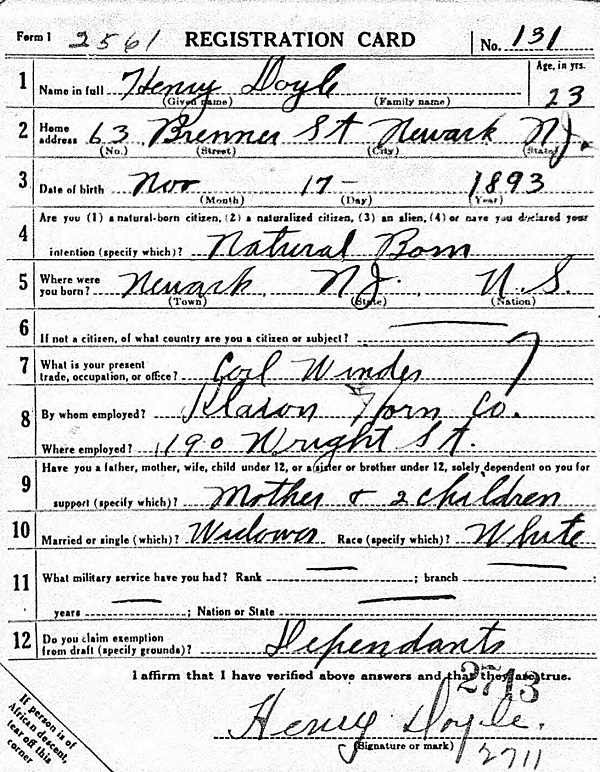 Form 1 2561 REGISTRATION CARD No. 131
1 Name in full Henry Doyle Age, in yrs.
(Given name) (Family name) 23
2 Home address 63 Brenner St Newark N.J.
(No.) (Street) (City) (State)
3 Date of birth Nov 17 - 1893
(Month) (Day) (Year)
4 Are you (1) a natural-born citizen, (2) a naturalized citizen, (3) an alien, (4) or have you declared your
intention (specify which)? Natural Born
5 Where were you born? Newark, N.J. U.S.
(Town) (State) (Nation)
6 If not a citizen, of what country are you a citizen or subject?
7 What is your present trade, occupation, or office? Coil Winder 7
8 By whom employed? Klaxon Horn Co.
Where employed? 190 Wright St.
9 Have you a father, mother, wife, child under 12, or a sister or brother under 12, solely dependent on you for
support (specify which)? Mother & 2 children
10 Married or single (which)? Widower Race (specify which)? White
11 What military service have you had? Rank ; branch
years ; Nation or State
12 Do you claim exemption from draft (specify grounds)? Dependants
I affirm that I have verified above answers and that they are true.
2713
Henry Doyle.
(Signature or mark) 2711
If person is of
African descent,
tear off this
corner